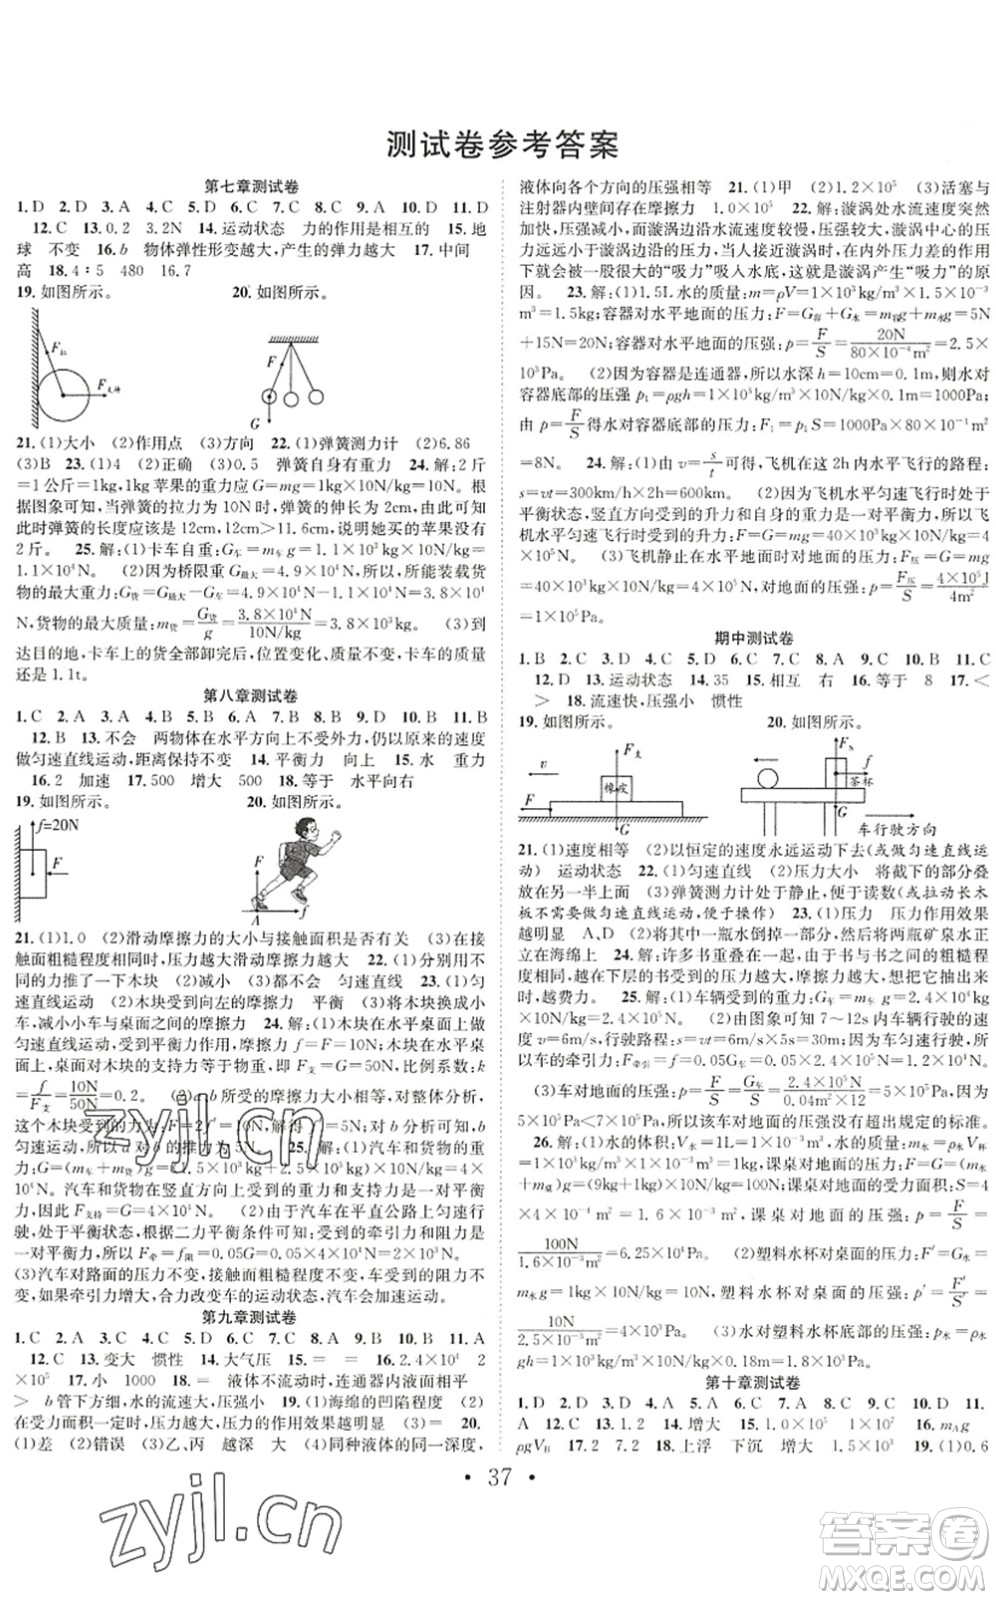 测试卷参考答案
第七章测试卷
1. D 2. D 3. A 4. C 5. D 6. C 7. D 8. C 9. D 10. D 11. D
12. C 13. 0.2 3.2N 14. 运动状态 力的作用是相互的 15. 地
球 不变 16. b 物体弹性形变越大,产生的弹力越大 17. 中间
高 18. 4:5 480 16.7
19. 如图所示。 20. 如图所示。
F拉
F支持
F
G
21. (1)大小 (2)作用点 (3)方向 22. (1)弹簧测力计 (2)6.86
(3)B 23. (1)4 (2)正确 (3)0.5 弹簧自身有重力 24. 解:2斤
=1公斤=1kg,1kg苹果的重力应 G=mg=1kg×10N/kg=
10N。根据图象可知,当弹簧的拉力为10N时,伸长为2cm,由此可知
此时弹簧的长度应该是12cm,12cm>11.6cm,说明她买的苹果没有
2斤。 25. 解:(1)卡车自重:G车=m车g=1.1×10³kg×10N/kg=
1.1×10⁴N。(2)因为桥限重G最大=4.9×10⁴N,所以,所能装载货
物的最大重力:G货=G最大-G车=4.9×10⁴N-1.1×10⁴N=3.8×10⁴
N,货物的最大质量:m货=G货/g=3.8×10⁴N/10N/kg=3.8×10³kg。 (3)到
达目的地,卡车上的货全部卸完后,位置变化,质量不变,卡车的质量还
是1.1t。
第八章测试卷
1. C 2. A 3. A 4. B 5. B 6. A 7. B 8. D 9. B 10. D 11. B
12. B 13. 不会 两物体在水平方向上不受外力,仍以原来的速度
做匀速直线运动,距离保持不变 14. 平衡力 向上 15. 水 重力
16. 2 加速 17. 500 增大 500 18. 等于 水平向右
19. 如图所示。 20. 如图所示。
f=20N
F
F
A
f
21. (1)1.0 (2)滑动摩擦力的大小与接触面积是否有关 (3)在接
触面粗糙程度相同时,压力越大滑动摩擦力越大 22. (1)分别用相
同的力推了一下木块 (2)减小 (3)都不会 匀速直线 23. (1)匀
速直线运动 (2)木块受到向左的摩擦力 平衡 (3)将木块换成小
车,减小小车与桌面之间的摩擦力 24. 解:(1)木块在水平桌面上做
匀速直线运动,受到平衡力作用,摩擦力f=F=10N;木块在水平桌
面上,桌面对木块的支持力等于木块的重力,F支=G=50N,比例系数:k
=f/F支=10N/50N=0.2。
25. 解:(1)汽车和货物的重
力:G=(m车+m货)g
(3)汽车对路面的压力不变,接触面粗糙程度不变,汽车受到的阻力不
变,如果牵引力增大,合力改变车的运动状态,汽车会加速运动。
第九章测试卷
1. C 2. A 3. C 4. C 5. B 6. D 7. D 8. C 9. B 10. B 11. A
12. C 13. 变大 惯性 14. 大气压 15. = = 16. 2.4×10⁴ 2
×10⁵ 17. 小 1000 18. = 液体不流动时,连通器内液面相平
> b管下方细,水的流速大,压强小 19. (1)海绵的凹陷程度 (2)
在受力面积一定时,压力越大,压力的作用效果越明显 (3)= 20.
(1)差 (2)错误 (3)乙、丙 越深 大 (4)同种液体的同一深度,
液体向各个方向的压强相等 21. (1)甲 (2)1.2×10⁵ (3)活塞与
注射器内壁间存在摩擦力 1.0×10⁵ 22. 解:漩涡处水流速度突然
加快,压强减小,而漩涡边沿水流速度较慢,漩涡中心的压强小
于漩涡边沿的压强,当物体接近漩涡时,在内外压力差的作用
下就会被一股很大的“吸力”吸入水底,这就是漩涡产生“吸力”的原
因。 23. 解:(1)1.5L水的质量:m=ρV=1×10³kg/m³×1.5×10⁻³
m³=1.5kg;容器对水平地面的压力:F=G容+G水=m容g+m水g=5N
+15N=20N;容器对水平地面的压强:p=F/S=20N/80×10⁻⁴m²=2.5×
10³Pa。 (2)因为容器是连通器,所以水深h=10cm=0.1m,则水对
容器底部的压强p₁=ρgh=1×10³kg/m³×10N/kg×0.1m=1000Pa,
由p=F/S得水对容器底部的压力:F₁=p₁S=1000Pa×80×10⁻⁴m²
=8N。 24. 解:(1)由v=s/t可得,飞机在这2h内水平飞行的路程:
s=vt=300km/h×2h=600km。 (2)因为飞机水平匀速飞行时处于
平衡状态,竖直方向受到的升力和自身的重力为一对平衡力,所以飞
机水平匀速飞行时受到的升力:F=G=mg=40×10³kg×10N/kg=
4×10⁵N。 (3)飞机静止在水平地面时对地面的压力:F压=G=mg
=40×10³kg×10N/kg=4×10⁵N,对地面的压强:p=F压/S=4×10⁵J/4m²
=1×10⁵Pa。
期中测试卷
1. B 2. C 3. D 4. C 5. D 6. C 7. D 8. A 9. C 10. B 11. C
12. D 13. 运动状态 14. 35 15. 相互 右 16. 等于 8 17. <
> 18. 流速快,压强小 惯性
19. 如图所示。 20. 如图所示。
v
F支
橡皮
F
G
F
f
茶杯
G
车行驶方向
21. (1)速度相等 (2)以恒定的速度永远运动下去(或做匀速直线运
动) 运动状态 22. (1)匀速直线 (2)增大 将截下的部分叠
放在另一半上面 (3)弹簧测力计处于静止,便于读数(或拉动长木
板不需要做匀速直线运动,便于操作等) 23. (1)压力 压力作用效果
越明显 A、D (2)将其中的一瓶水倒掉一半后,将两瓶矿泉水正
立在海绵上 24. 解:许多书重叠在一起,由于书与书之间的粗糙程度
相同,越在下层的书受到的压力越大,摩擦力越大,想把书抽出来
时,越费力。 25. 解:(1)车辆受到的重力:G车=m车g=2.4×10⁴kg
×10N/kg=2.4×10⁵N。 (2)由图象可知7~12s内车辆行驶的速
度v=6m/s,行驶路程:s=vt=6m/s×5s=30m;因为车匀速行驶,所
以车的牵引力:F牵引=f=0.05G车=0.05×2.4×10⁵N=1.2×10⁴N。
(3)车对地面的压强:p=F/S=G车/S=2.4×10⁵N/0.04m²×12=5×10⁵Pa,因为
5×10⁵Pa<7×10⁵Pa,所以该车对地面的压强没有超出规定的标准。
26. 解:(1)水的体积:V水=1L=1×10⁻³m³,水的质量:m水=ρ水V水=
(2)塑料水杯对桌面的压力:F′=G水=
m水g=1kg×10N/kg=10N,塑料水杯对桌面的压强:p′=F′/S′=
10N/2.5×10⁻³m²=4×10³Pa。 (3)水对塑料水杯底部的压强:p水=ρ水
gh=1×10³kg/m³×10N/kg×0.18m=1.8×10³Pa。
第十章测试卷
1. D 2. C 3. D 4. C 5. C 6. D 7. B 8. C 9. A 10. D 11.
A 12. C 13. < 14. 增大 15. 1.0×10³ 1×10² 16. mAg
ρgVB 17. 2 7.2 18. 上浮 下沉 增大 1.5×10³ 19. (1)0.6
• 37 •
zyjl.cn
zyjl.cn
答案圈
MXQE.COM